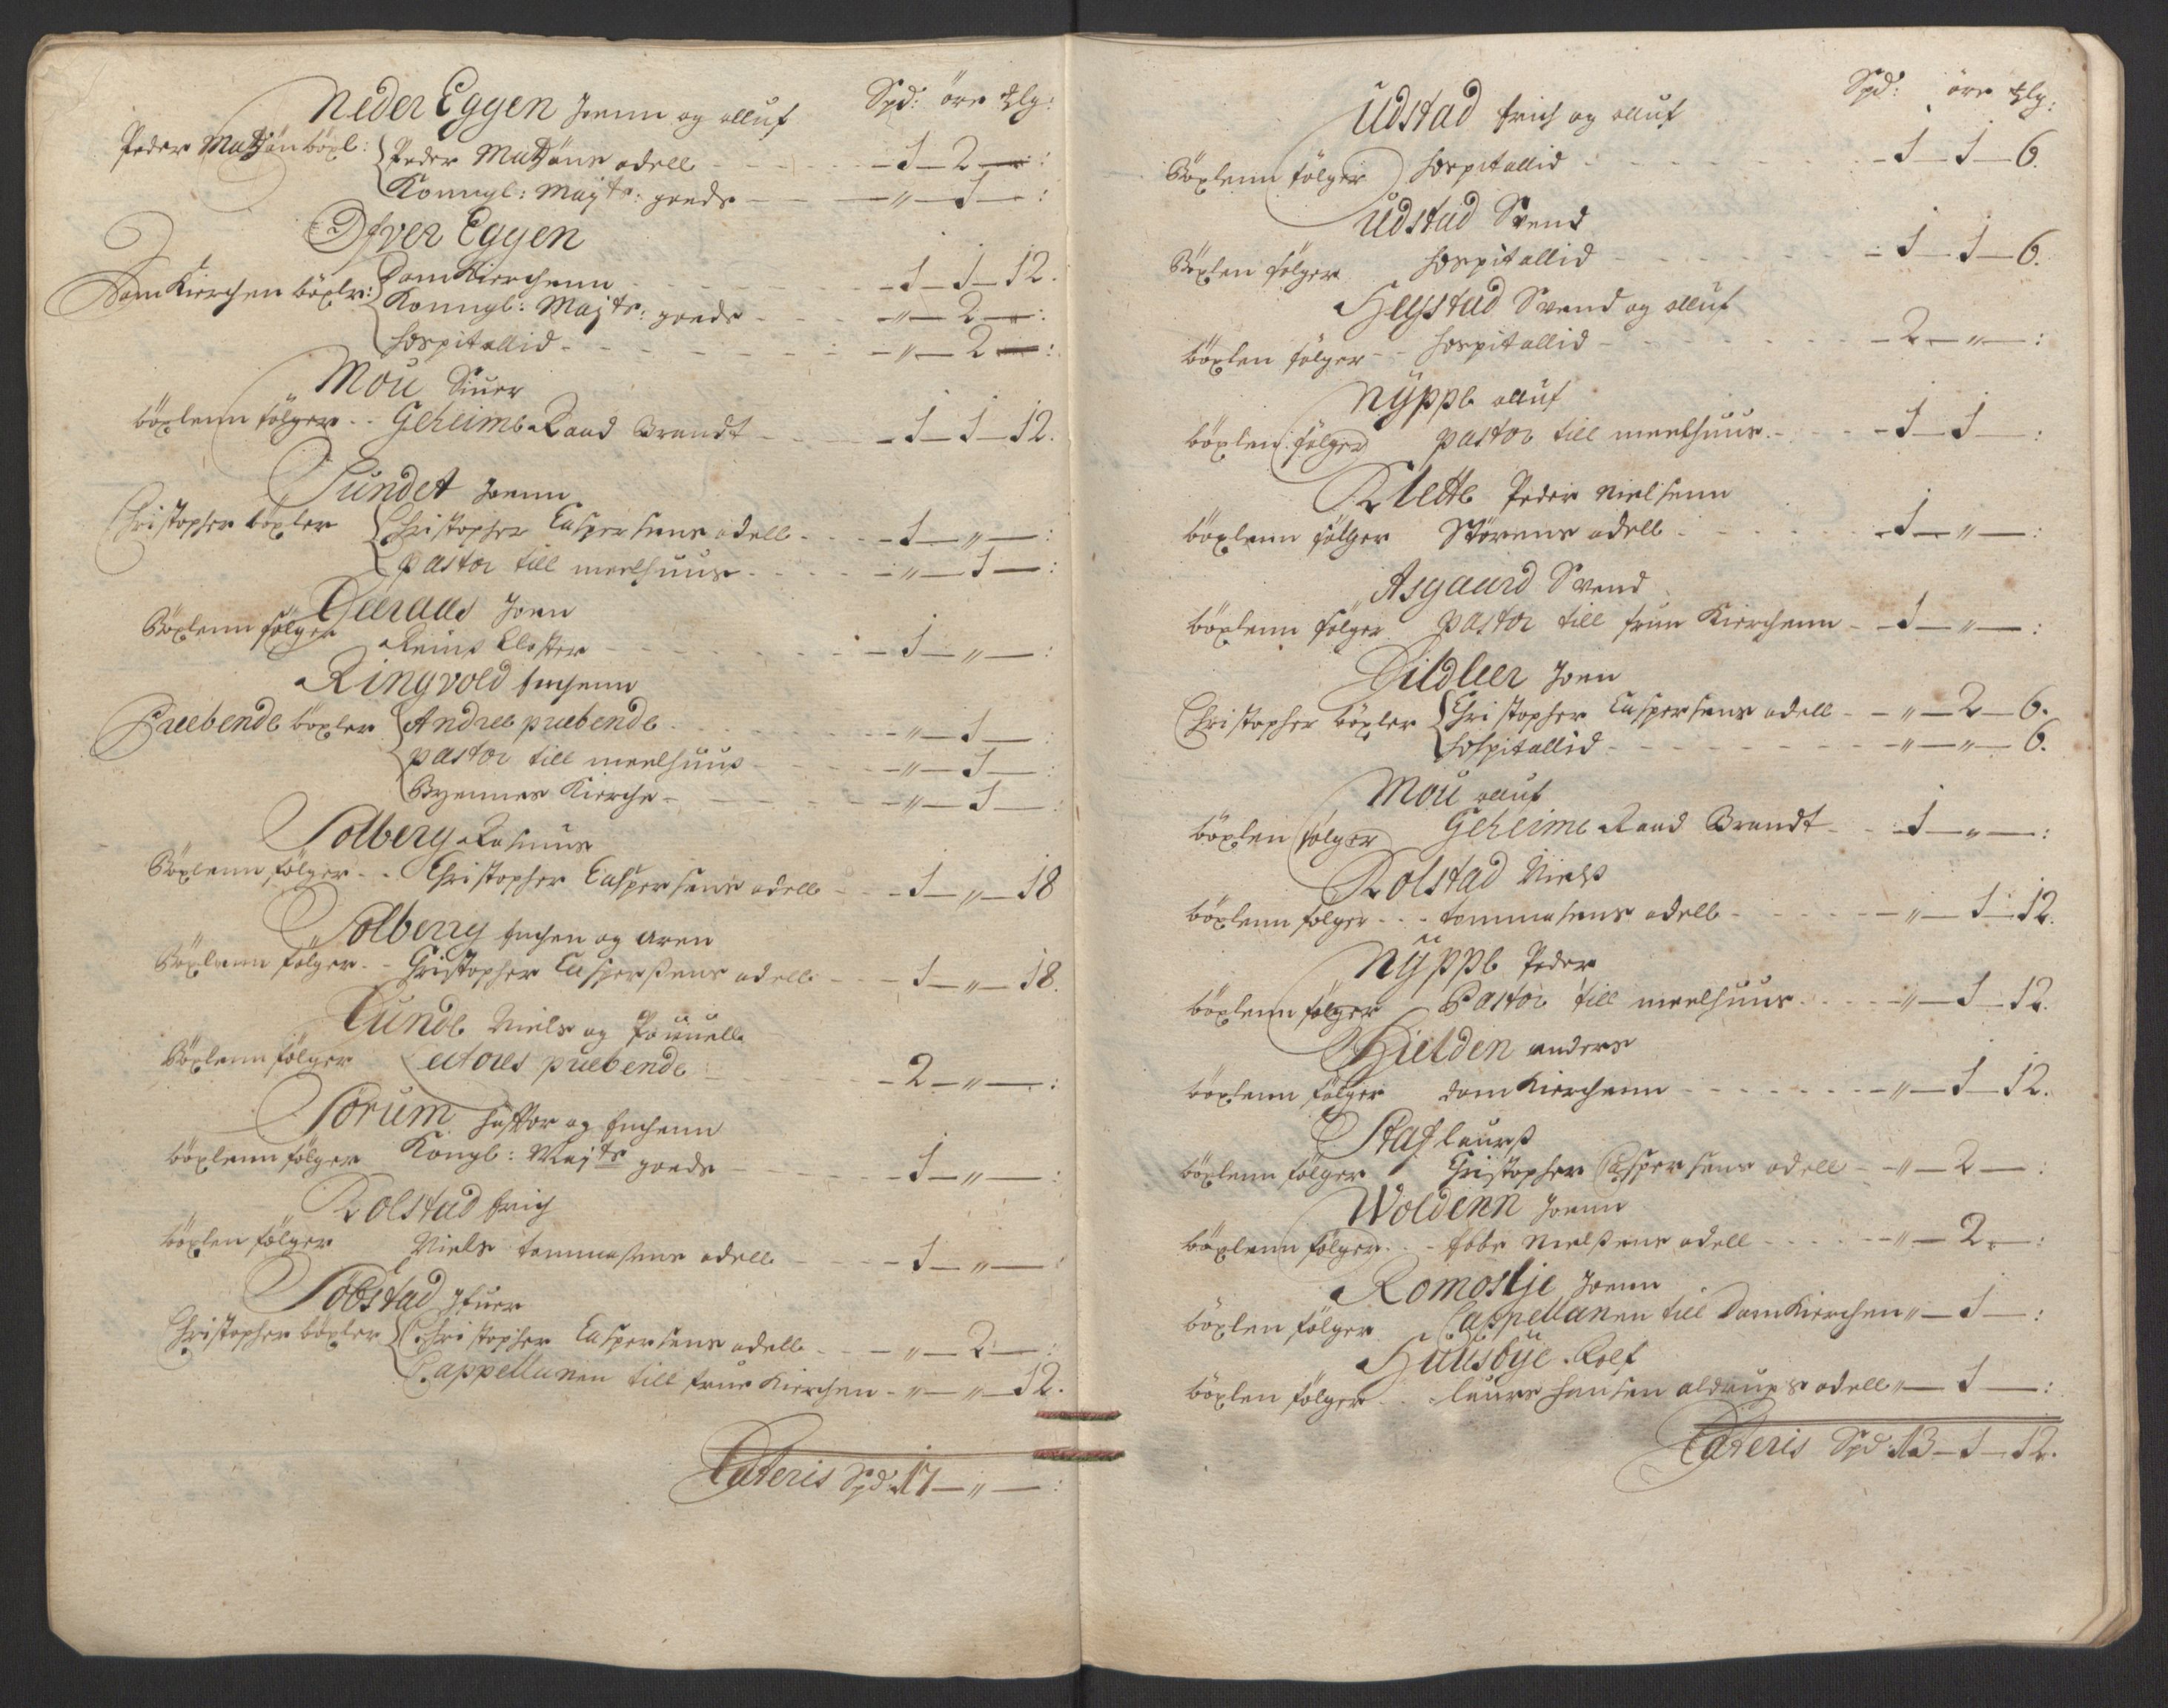 Spd: öre Mlg:
Neder Eggen Joenn og olluf
Peder Matzön böxl: Peder Matzöns odell - 1 - 2 - :
Konngl: Mayts: goeds - " - 1 - :
Øfver Eggen
DomKierchen böxlr: DomKierchenn - 1 - 1 - 12.
Konngl: Majts: goeds - " - 2 - :
Hospitallid - " - 2 - :
Mou Siuer
böxlenn fölger - - Geheime Raad Brandt - 1 - 1 - 12.
Sundet Joenn
Christopher böxler Christopher Caspersens odell - 1 - " - :
Pastor till meelhuus - " - 1 - :
Joen
Böxlenn fölger Reins Closter - 1 - " - :
Ringvold Enchenn
Præbende böxler Andree præbende - " - 1 - :
pastor till meelhuus - " - 1 - :
Byennes Kierche - " - 1 - :
Solberg Rasmus
Böxlenn fölger - - Christopher Caspersens odell - 1 - " - 18
Solberg Enchen og Aren
Böxlenn fölger - - Christopher Casperßens odell - 1 - " - 18.
Lunde Niels og Pouell
Böxlenn fölger Lectores præbende - 2 - " - :
Sörum og Enchenn
böxlenn fölger Kongl: Majts goeds - 1 - " - :
Rolstad Erich
böxlen fölger Niels Tommasens odell - 1 - " - :
Söbstad Ifuer
Christopher böxler Christopher Caspersens odell - " - 2 - :
Cappellanen till frue Kierchen - " - " - 12.
Lateris Spd: 17 - " - :
Spd: öre Mlg:
Udstad Erich og olluf
Böxlenn fölger Hospitallid - 1 - 1 - 6.
Udstad Svend
Böxlen fölger Hospitallid - 1 - 1 - 6.
Hegstad Svend og olluf
böxlen fölger - - Hospitallid - 2 - " - :
Nÿppe olluf
böxlen fölger pastor till meelhuus - 1 - 1 - :
Klette Peder Nielsenn
böxlenn fölger Störens odell - 1 - " - :
Asgaard Svend
böxlenn fölger pastor till frue Kierchenn - 1 - " - :
Joen
Christopher böxler Christopher Caspersens odell - " - 2 - 6.
Hospitallid - " - " - 6.
Mou olluf
böxlen fölger Geheime Raad Brandt - 1 - " - :
Rolstad Nielß
böxlenn fölger - - - Tommasens odell - " - 1 - 12.
Nÿppe Peder
böxlenn fölger Pastor till meelhuus - " - 1 - 12.
Hielden anders
böxlenn fölger domKierchenn - " - 1 - 12.
Staf laurß
böxlenn fölger Christopher Caspersens odell - " - 2 - :
Woldenn Joenn
böxlenn fölger - - Ebbe Nielßens odell - " - 2 - :
Romoslje Joenn
böxlen fölger Cappellanen till DomKierchen " - 1 - :
Huusbÿe Rolf
böxlen fölger - - laurs Hansen aldrups odell " - 1 - :
Lateris Spd: 13 - 1 - 12.